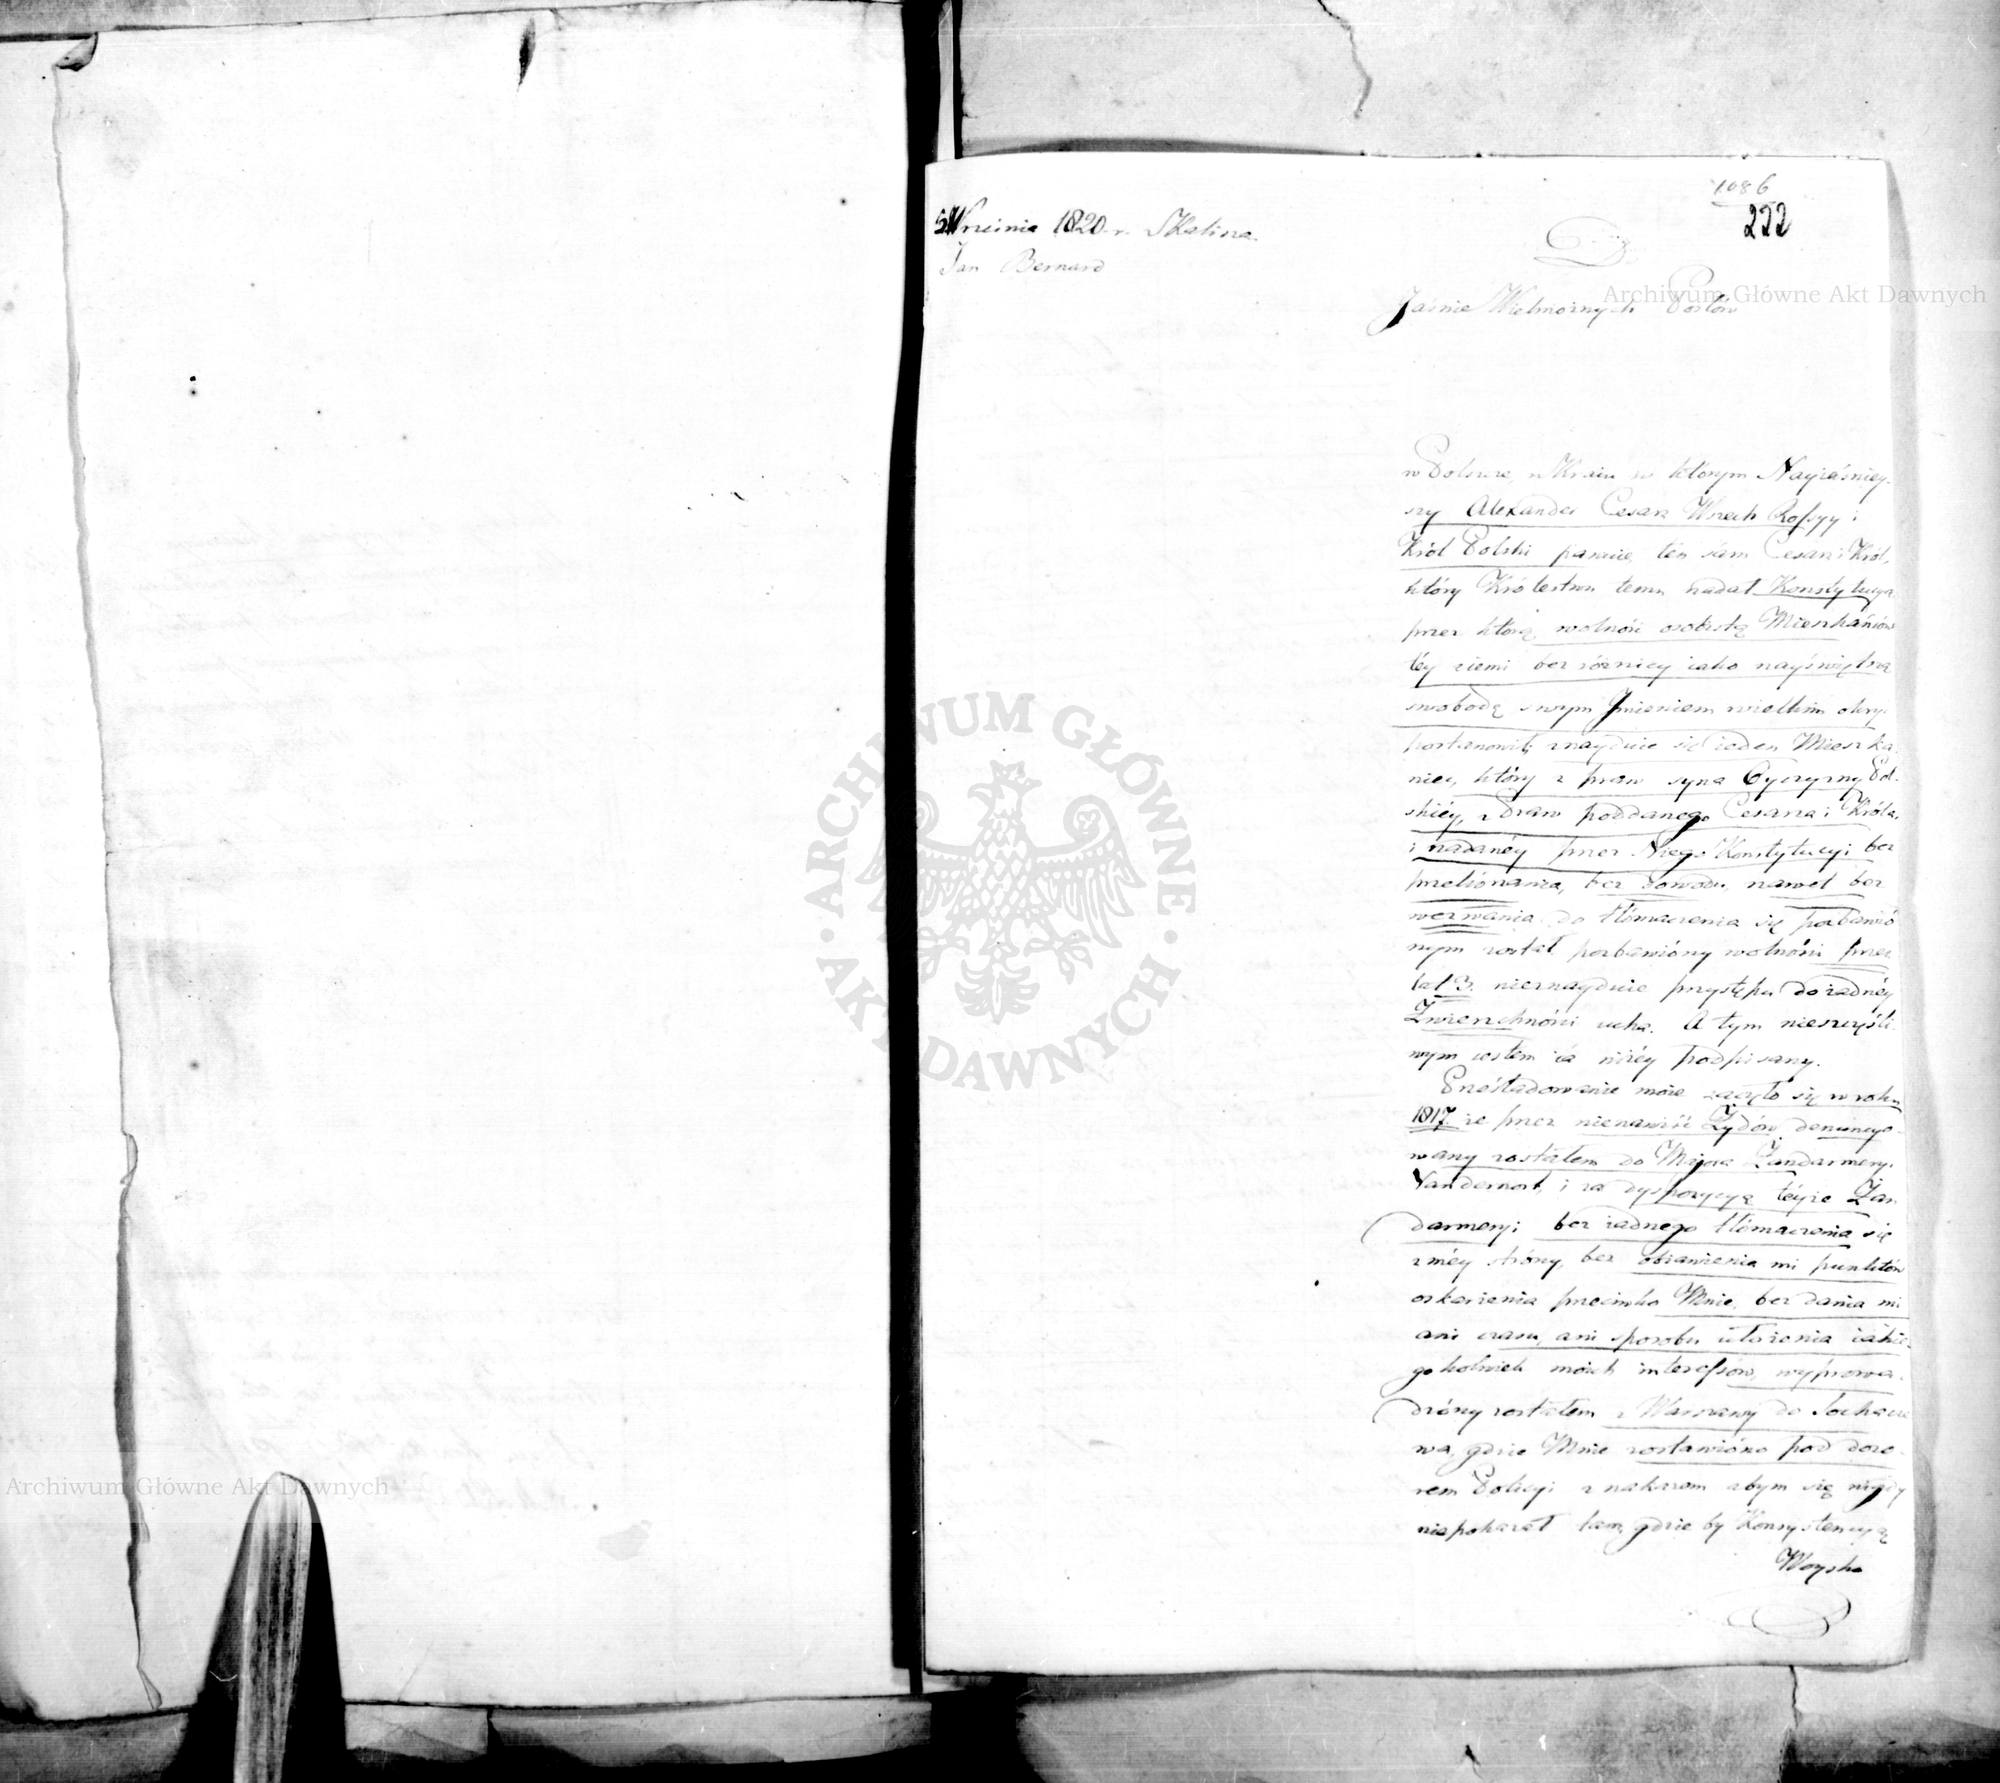 1086
222
5 Wrzesnia 1820 r. z Kalisza
Jan Bernard
Do
Jaśnie Wielmożnych Posłów
w Polszcze, w Kraiu w którym Nayiaśniey-
szy Alexander Cesarz Wszech Rossyy i
Król Polski panuie, ten sam Cesarz i Król,
który Królestwu temu nadał Konstytucyą
przez którą, wolność osobistą Mieszkańców
téy ziemi bez różnicy iako nayświętszą
swobodę swym Jmieniem wielkim okry
postanowił, znayduie się ieden Mieszka-
niec, który z praw syna Oyczyzny Pol-
skiéy, z Praw poddanego Cesarza i Króla,
i nadanéy przez Niego Konstytucyi bez
przekónania, bez dowodu, nawet bez
wezwania do tłómaczenia się pozbawió-
nym został, pozbawióny wolności przez
lat 3. nieznayduie przystępu do żadnéy
Zwierzchności ucha. A tym nieszczęśli-
wym iestem ia niżéy podpisany.
Prześladowanie moie zaczęło się w roku
1817. że przez nienawiść Żydów denuncyo-
wany zostałem do Majora Żandarmeryi
Vandernot, i za dyspozycyą téyże Żan-
darmeryi bez żadnego tłómaczenia się
z méy stróny, bez obiawienia mi punktów
oskarżenia przeciwko Mnie, bez dania mi
ani czasu, ani sposobu ułożenia iakie-
gokolwiek moich interessów, wyprowa-
dzóny zostałem z Warszawy do Sochacze
wa, gdzie Mnie zostawióno pod dozo-
rem Policyi z nakazem abym się nigdy
niepokazał tam, gdzie by Konsystencyą
Woyska
Archiwum Główne Akt Dawnych
ARCHIWUM GŁÓWNE • AKT DAWNYCH •
Archiwum Główne Akt Dawnych